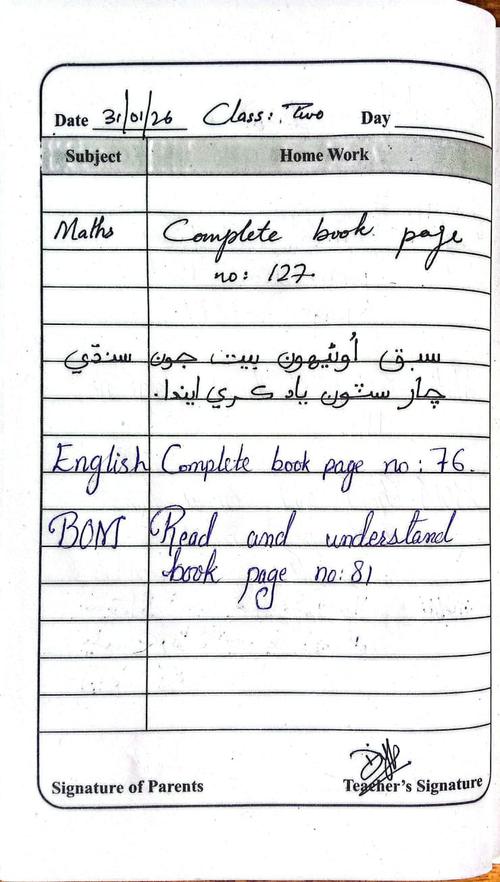 Date 31/01/26 Class: Two Day
Subject Home Work
Maths Complete book page
no: 127
سنڌي سبق اُوڻيهون بيت جون
چار سٽون ياد ڪري ايندا.
English Complete book page no: 76.
BOM Read and understand
book page no: 81
Signature of Parents Teacher's Signature